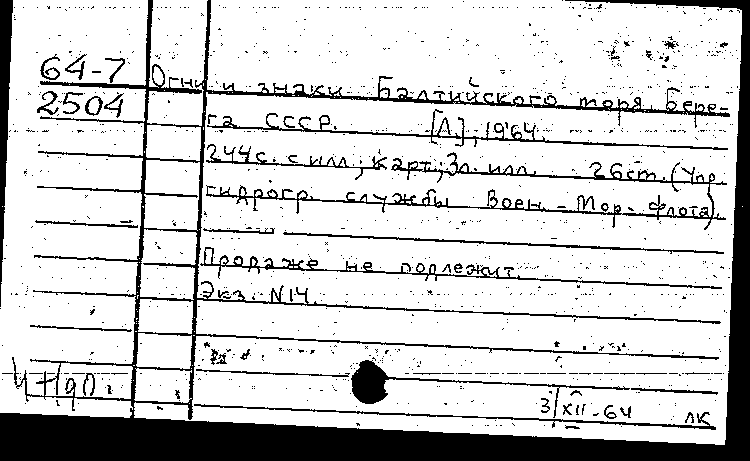 64-7 Огни и знаки Балтийского моря. Бере-
2504 га СССР. [Л.], 1964.
244с. с илл., карт; 3л. илл. 26см. (Упр.
гидрогр. службы Воен.-Мор. флота).
Продаже не подлежит.
Экз. N14.
3/XII-64 ЛК